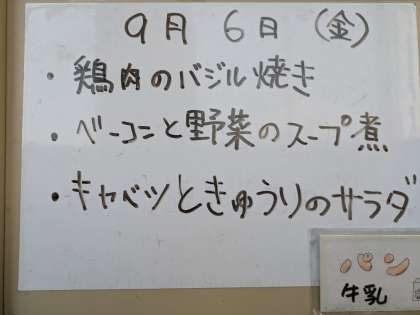 9月 6日 (金)
・鶏肉のバジル焼き
・ベーコンと野菜のスープ煮
・キャベツときゅうりのサラダ
パン
牛乳